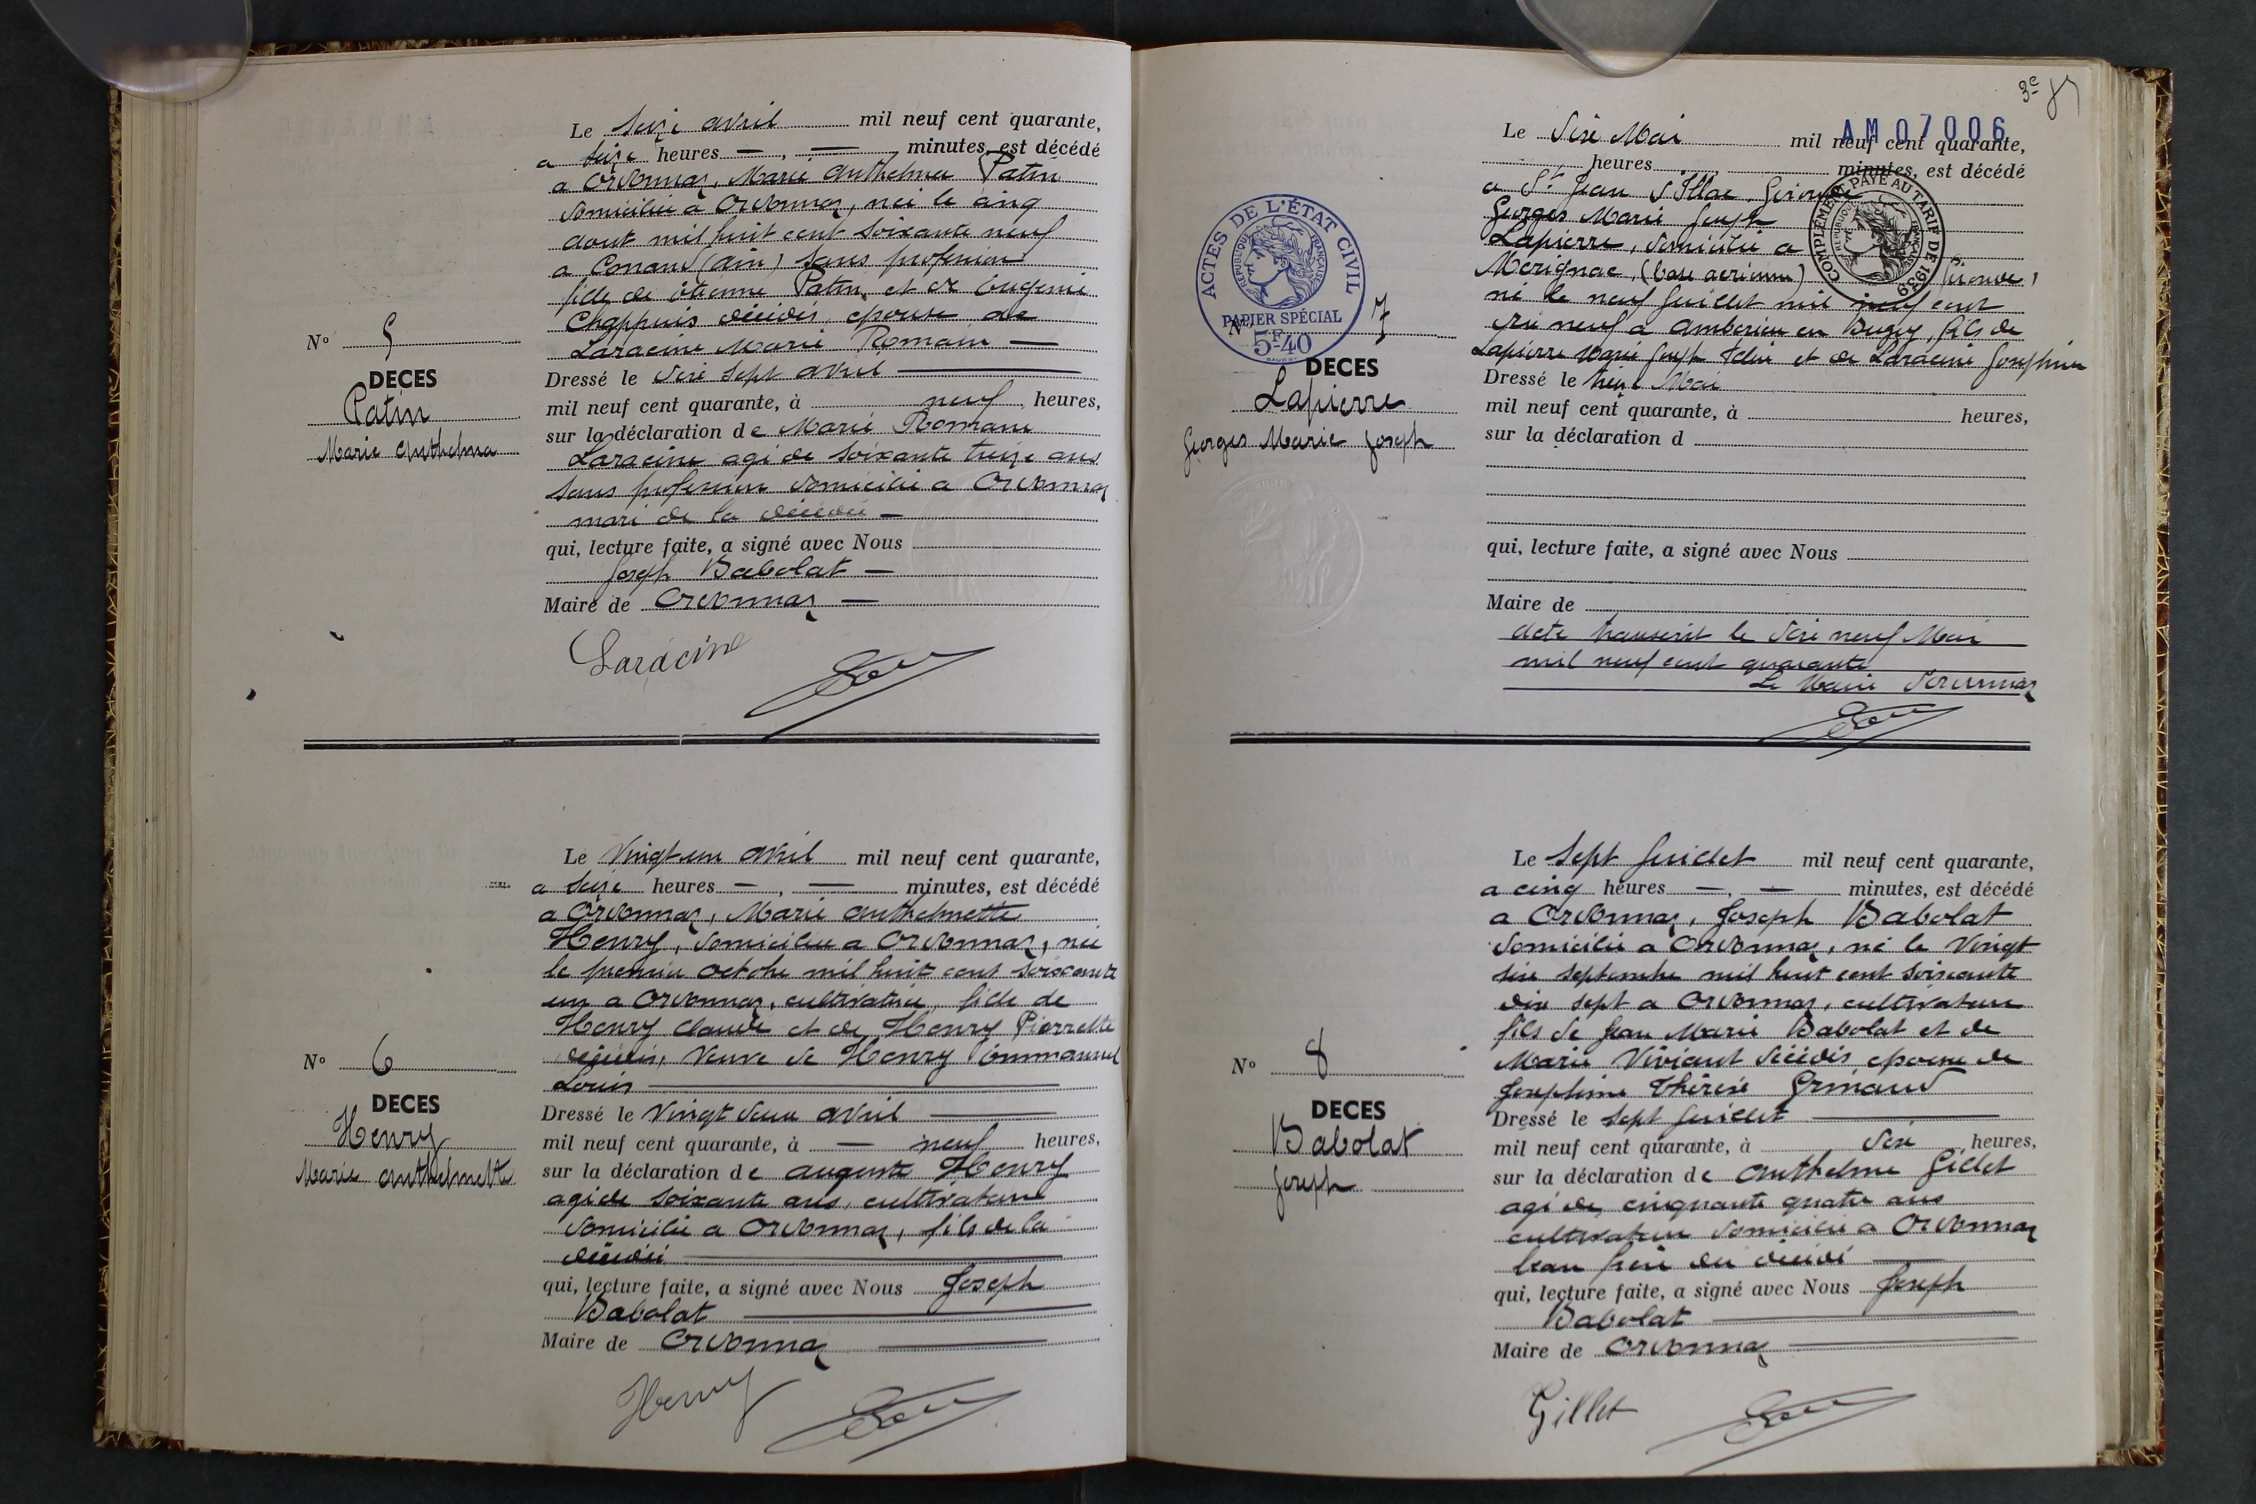 Le seize avril mil neuf cent quarante,
a seize heures — , — minutes, est décédé
a Ordonnaz, Marie Anthelma Patin
domiciliée a Ordonnaz, née le cinq
aout mil huit cent soixante neuf
a Conand (Ain) sans profession
fille de Etienne Patin, et de Eugenie
Chappuis décédés, épouse de
Laracine Marie Romain —
N° 5
DECES
Patin
Marie Anthelma
Dressé le dix sept avril
mil neuf cent quarante, à neuf heures,
sur la déclaration de Marie Romain
Laracine agé de soixante treize ans
sans profession domicilié a Ordonnaz
mari de la décédée —
qui, lecture faite, a signé avec Nous
Joseph Babolat —
Maire de Ordonnaz —
Laracine
Le Vingt un avril mil neuf cent quarante,
a seize heures — , — minutes, est décédé
a Ordonnaz, Marie Anthelmette
Henry, domiciliée a Ordonnaz, née
le premier octobre mil huit cent soixante
un a Ordonnaz, cultivatrice, fille de
Henry Claude et de Henry Pierrette
décédés, veuve de Henry Emmanuel
Louis
N° 6
DECES
Henry
Marie Anthelmette
Dressé le Vingt deux avril
mil neuf cent quarante, à — neuf heures,
sur la déclaration de Auguste Henry
agé de soixante ans, cultivateur
domicilié a Ordonnaz, fils de la
décédée
qui, lecture faite, a signé avec Nous Joseph
Babolat
Maire de Ordonnaz
Henry
3e
AM 07006
Le Dix Mai mil neuf cent quarante,
heures minutes, est décédé
a St Jean d'Illac Gironde
Georges Marie Joseph
Lapierre, domicilié a
Merignac, (base aerienne) Gironde,
né le neuf Juillet mil neuf cent
dix neuf a Amberieu en Bugey, fils de
Lapierre Marie Joseph et de Laracine Josephine
COMPLÉMENT PAYÉ AU TARIF DE 1939
REPUBLIQUE FRANÇAISE
ACTES DE L'ÉTAT CIVIL
REPUBLIQUE FRANÇAISE
PAPIER SPÉCIAL
5F40
N° 7
DECES
Lapierre
Georges Marie Joseph
Dressé le treize Mai
mil neuf cent quarante, à heures,
sur la déclaration d
qui, lecture faite, a signé avec Nous
Maire de
Acte transcrit le dix neuf Mai
mil neuf cent quarante
Le Maire d'Ordonnaz
Le Sept Juillet mil neuf cent quarante,
a cinq heures —, — minutes, est décédé
a Ordonnaz, Joseph Babolat
domicilié a Ordonnaz, né le Vingt
six septembre mil huit cent soixante
dix sept a Ordonnaz, cultivateur
fils de Jean Marie Babolat et de
Marie Viviant décédés, epoux de
Josephine Thérèse Grinand
N° 8
DECES
Babolat
Joseph
Dressé le sept Juillet
mil neuf cent quarante, à dix heures,
sur la déclaration de Anthelme Gillet
agé de cinquante quatre ans
cultivateur domicilié a Ordonnaz
beau frère du décédé
qui, lecture faite, a signé avec Nous Joseph
Babolat
Maire de Ordonnaz
Gillet